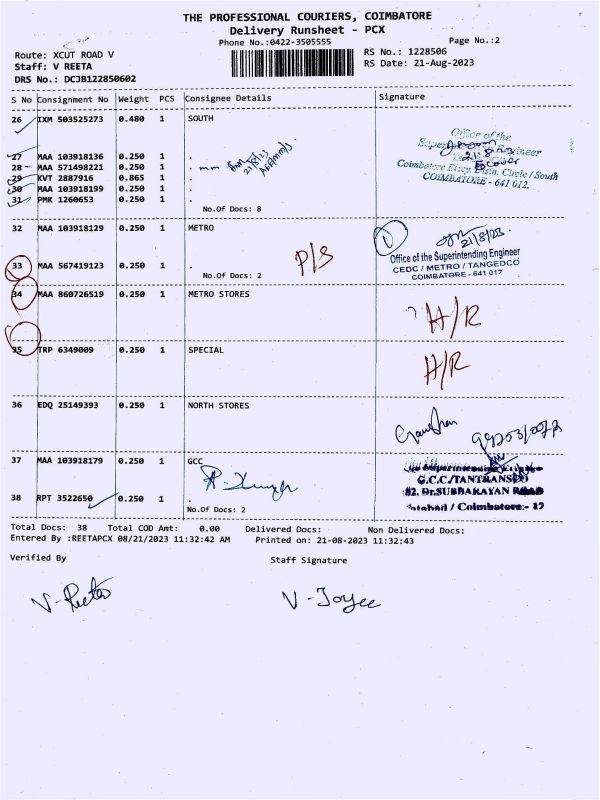 THE PROFESSIONAL COURIERS, COIMBATORE
Delivery Runsheet - PCX
Phone No.:0422-3505555 Page No.:2
Route: XCUT ROAD V RS No.: 1228506
Staff: V REETA RS Date: 21-Aug-2023
DRS No.: DCJB122850602
S No Consignment No Weight PCS Consignee Details Signature
26 IXM 503525273 0.480 1 SOUTH
Office of the
Engineer
Coimbatore Elecy. Distn. Circle / South
COIMBATORE - 641 012.
27 MAA 103918136 0.250 1 .
28 MAA 571498221 0.250 1 .
29 KVT 2887916 0.865 1 .
30 MAA 103918199 0.250 1 .
31 PMK 1260653 0.250 1 .
21/8/23
No.Of Docs: 8
32 MAA 103918129 0.250 1 METRO
21/8/23
Office of the Superintending Engineer
CEDC / METRO / TANGEDCO
COIMBATORE - 641 012
33 MAA 567419123 0.250 1 . P/S
No.Of Docs: 2
34 MAA 860726519 0.250 1 METRO STORES
H/R
35 TRP 6349009 0.250 1 SPECIAL
H/R
36 EDQ 25149393 0.250 1 NORTH STORES
37 MAA 103918179 0.250 1 GCC
G.C.C/TANTRANSCO
82. Dr.SUBRAKAYAN ROAD
/ Coimbatore:- 12
38 RPT 3522650 0.250 1 .
No.Of Docs: 2
Total Docs: 38 Total COD Amt: 0.00 Delivered Docs: Non Delivered Docs:
Entered By :REETAPCX 08/21/2023 11:32:42 AM Printed on: 21-08-2023 11:32:43
Verified By Staff Signature
V-Reeta V-Joyee